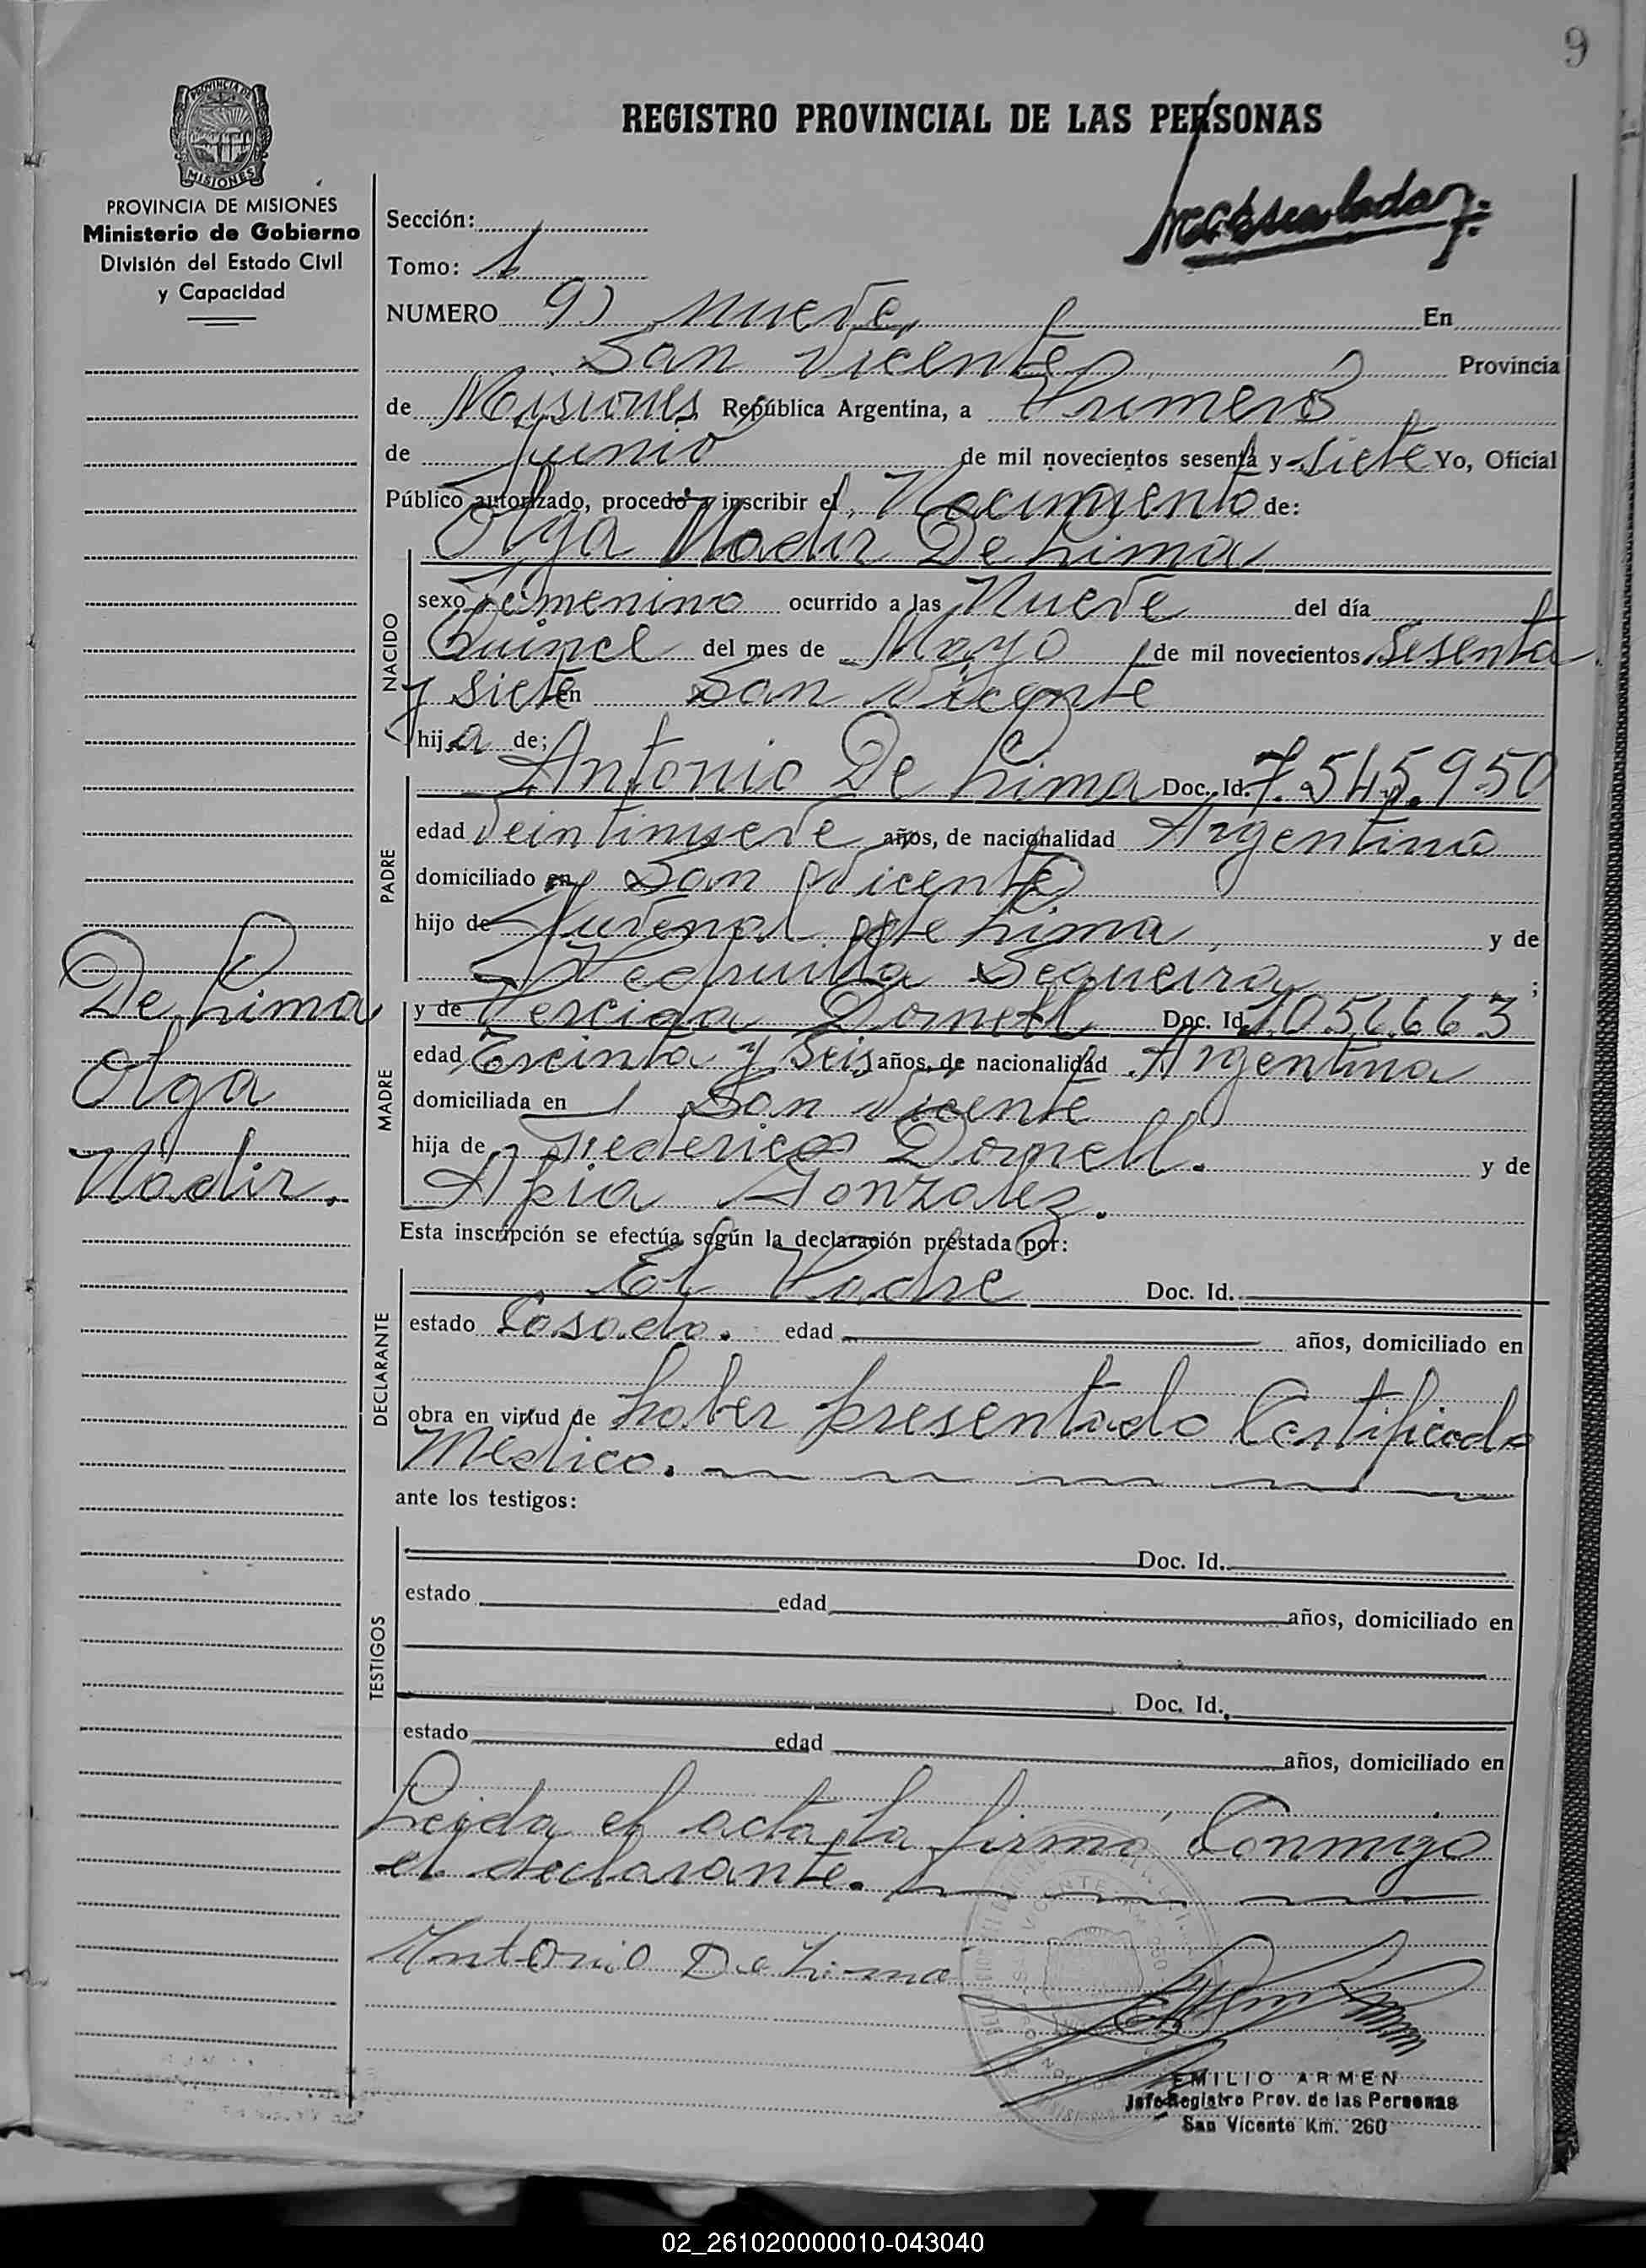 9
PROVINCIA DE
MISIONES
REGISTRO PROVINCIAL DE LAS PERSONAS
PROVINCIA DE MISIONES
Ministerio de Gobierno
División del Estado Civil
y Capacidad
Sección:
Tomo: 1
NUMERO 9) Nueve, En
San Vicente Provincia
de Misiones República Argentina, a Primero
de Junio de mil novecientos sesenta y siete Yo, Oficial
Público autorizado, procedo a inscribir el Nacimiento de:
Olga Nadir De Lima
NACIDO
sexo Femenino ocurrido a las Nueve del día
Quince del mes de Mayo de mil novecientos Sesenta
y siete en San Vicente
hija de;
PADRE
Antonio De Lima Doc. Id. 7.545.950
edad Veintinueve años, de nacionalidad Argentino
domiciliado en San Vicente
hijo de Juvenal de Lima, y de
Sequeira ;
MADRE
y de Dornell Doc. Id.
edad Treinta y Seis años, de nacionalidad Argentina
domiciliada en San Vicente
hija de Federico Dornell. y de
Apia Gonzalez.
De Lima
Olga
Nadir.
Esta inscripción se efectúa según la declaración prestada por:
DECLARANTE
El Padre Doc. Id.
estado Casado. edad años, domiciliado en
obra en virtud de haber presentado Certificado
Médico.
ante los testigos:
TESTIGOS
Doc. Id.
estado edad años, domiciliado en
Doc. Id.
estado edad años, domiciliado en
Leída el acta, la firmó Conmigo
el declarante.
Antonio De Lima
EMILIO ARMEN
Jefe Registro Prov. de las Personas
San Vicente Km. 260
02_261020000010-043040